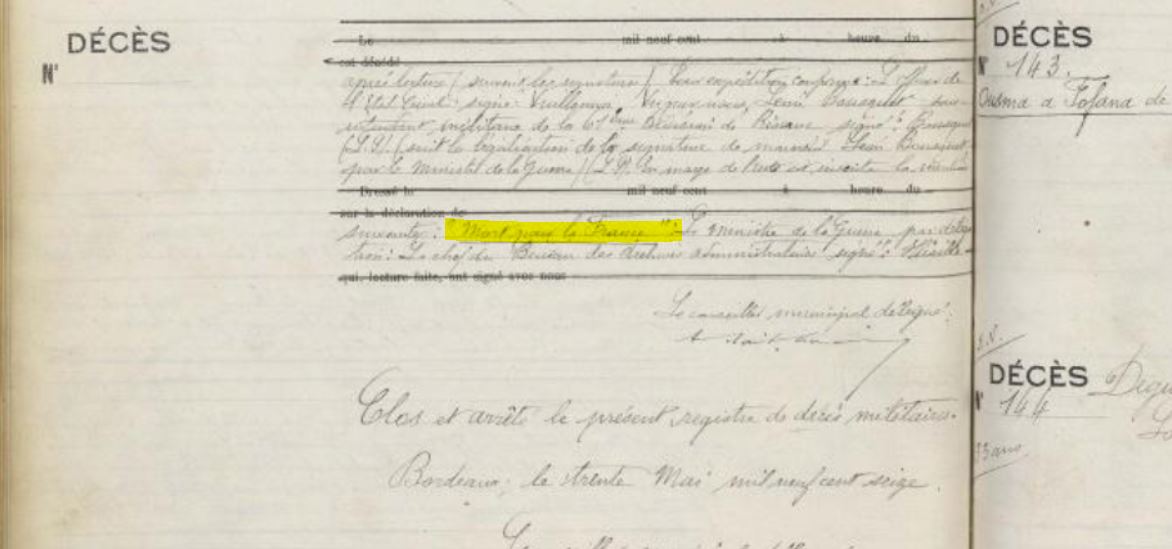 DÉCÈS
N°
Le mil neuf cent à heure du
est décédé
après lecture (suivent les signatures) Pour expédition conforme: L'officier de
l'État Civil signé: Vuillemin, Vu par nous, Jean Bousquet sous-
intendant militaire de la 67ème Division de Réserve signé: Bousquet
(L.S.) (suit la légalisation de la signature de Jean Bousquet
par le Ministre de la Guerre) (L.S.) En marge de l'acte est inscrite la mention
Dressé le mil neuf cent à heure du
sur la déclaration de
suivante: "Mort pour la France": Le ministre de la Guerre par
Le chef du Bureau des Archives administratives signé:
qui, lecture faite, ont signé avec nous
Le conseiller municipal délégué:
Clos et arrêté le présent registre de décès militaires.
Bordeaux, le trente Mai mil neuf cent seize.
DÉCÈS
N° 143.
DÉCÈS
N° 144